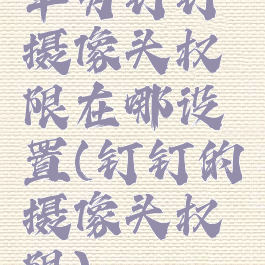 有钉钉
摄像头权
限在哪设
置(钉钉的
摄像头权
限)